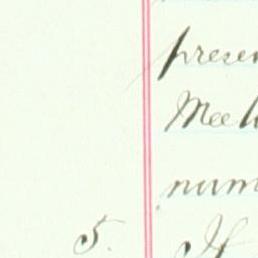 presen
Meet
num
5. If